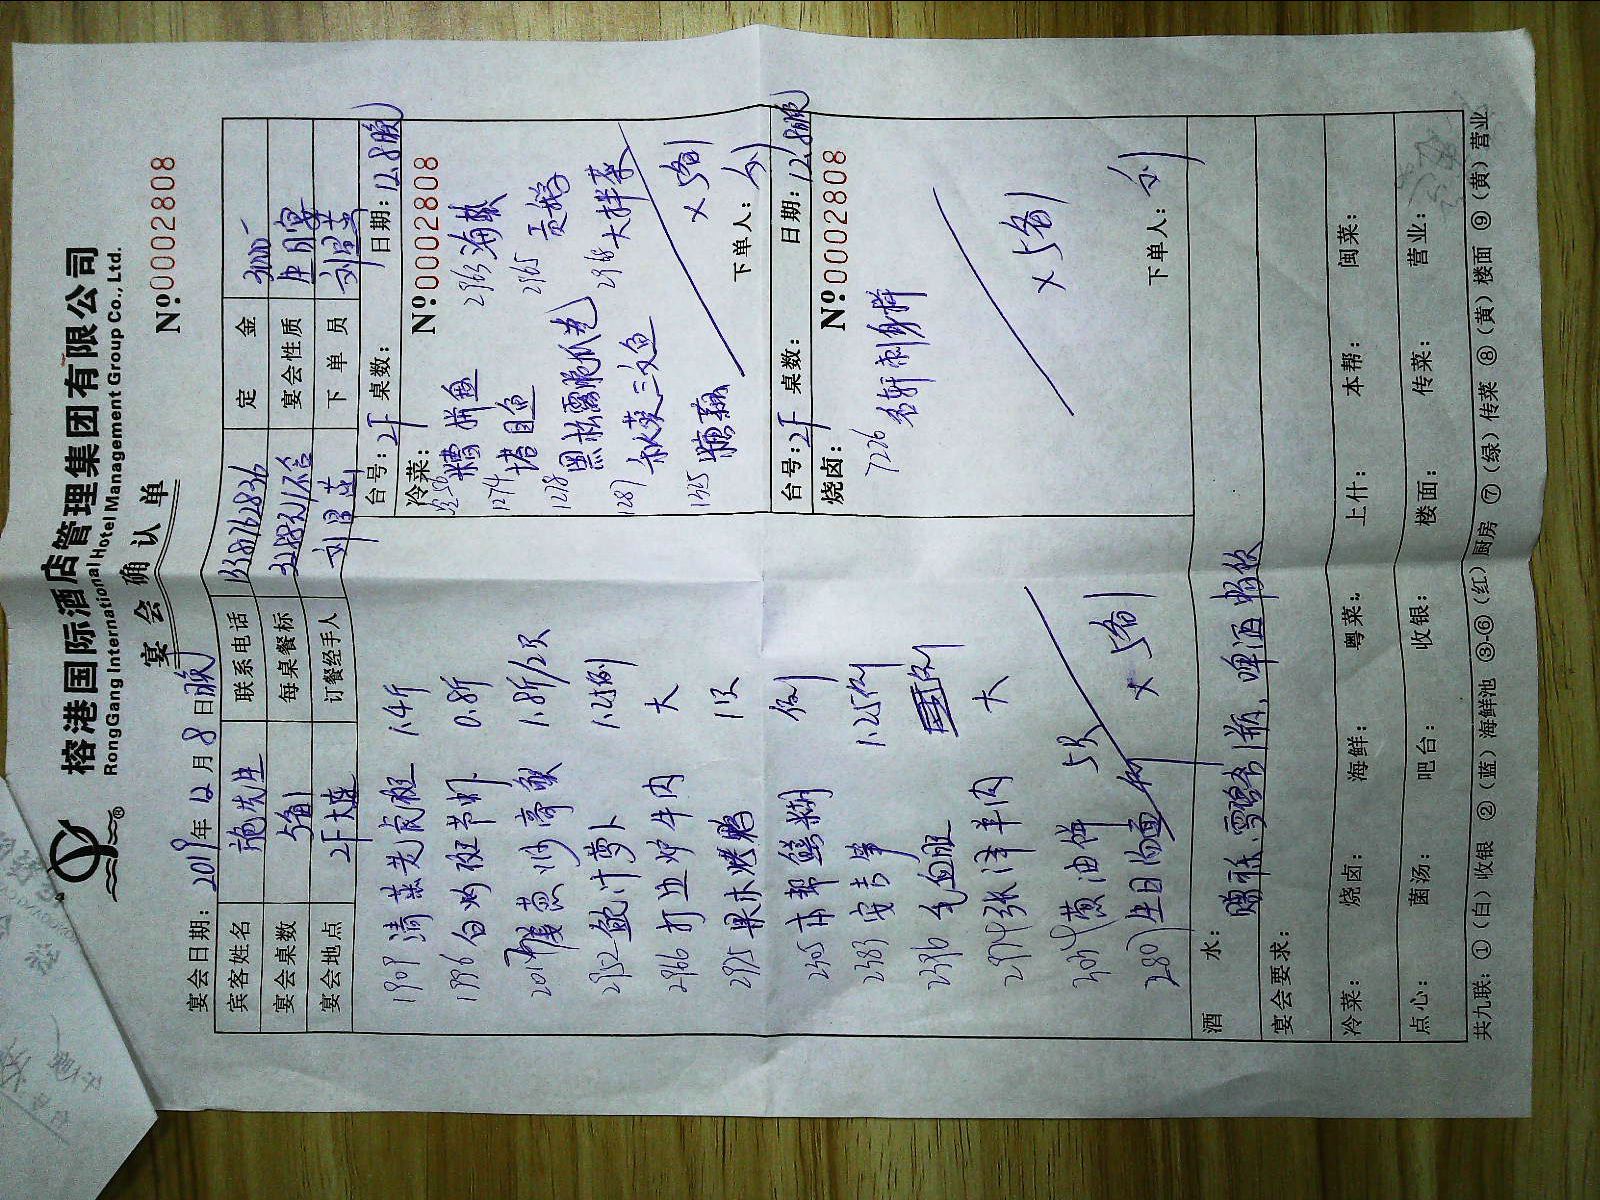 榕港国际酒店管理集团有限公司
RongGang International Hotel Management Group Co., Ltd.
宴会确认单
No:0002808
宴会日期: 2019年12月8日晚
宾客姓名 鲍先生 联系电话 定金 3000
宴会桌数 5备1 每桌餐标 宴会性质 生日宴
宴会地点 2F大连 订餐经手人 刘 下单员 刘
清蒸老虎斑 1.4斤
1996 白灼斑节虾 0.8斤
葱炒膏蟹 1.8斤/2只
鲍汁萝卜 1.2例
2966 打边炉牛肉 大
2925 果木烤鸭 1只
2305 本帮鳝糊 例
2383 安吉笋 1.25例
2396 毛血旺 例
2974 张泽羊肉 大
葱油饼 5只
2807 生日面 例
x 5备1
台号: 2F 桌数: 日期: 12.8晚
冷菜: No:0002808
糟拼盘 2963 海蜇
1274 塔目鱼 2965
1278 黑松露脆瓜卷 大拌菜
1287 秋葵三文鱼
1325 糖藕 x 5备1
下单人:
台号: 2F 桌数: 日期: 12.8晚
烧卤: No:0002808
7226 名轩刺身拼
x 5备1
下单人:
酒水: 赠可乐、雪碧各1瓶, 啤酒畅饮
宴会要求:
冷菜: 烧卤: 海鲜: 粤菜: 上什: 本帮: 闽菜:
点心: 菌汤: 吧台: 收银: 楼面: 传菜: 营业:
共九联: ①(白)收银 ②(蓝)海鲜池 ③-⑥(红)厨房 ⑦(绿)传菜 ⑧(黄)楼面 ⑨(黄)营业